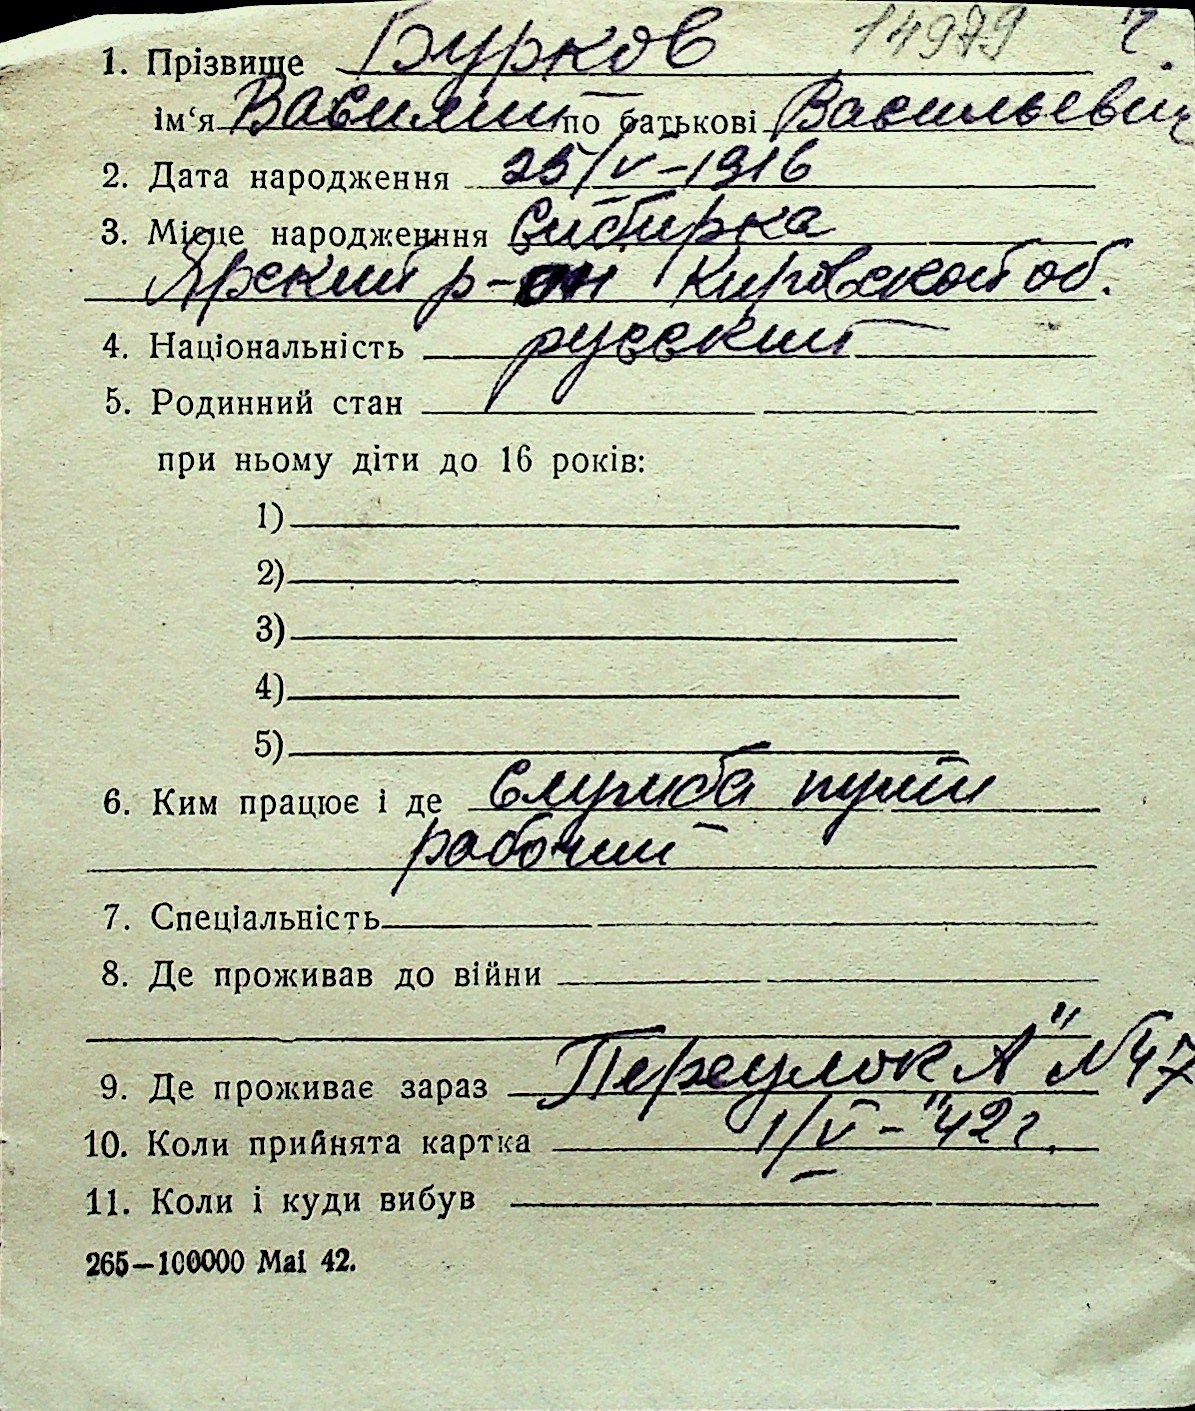 1. Прізвище Бурков 14979 ч.
ім‘я Василий по батькові Васильевич
2. Дата народження 25/V-1916
3. Місце народження Сибирка
Ярский р-он Кировской об.
4. Національність русский
5. Родинний стан
при ньому діти до 16 років:
1)
2)
3)
4)
5)
6. Ким працює і де служба пути
рабочий
7. Спеціальність
8. Де проживав до війни
9. Де проживає зараз Переулок „А" №47
10. Коли прийнята картка 1/V-42г.
11. Коли і куди вибув
265—100000 Mai 42.